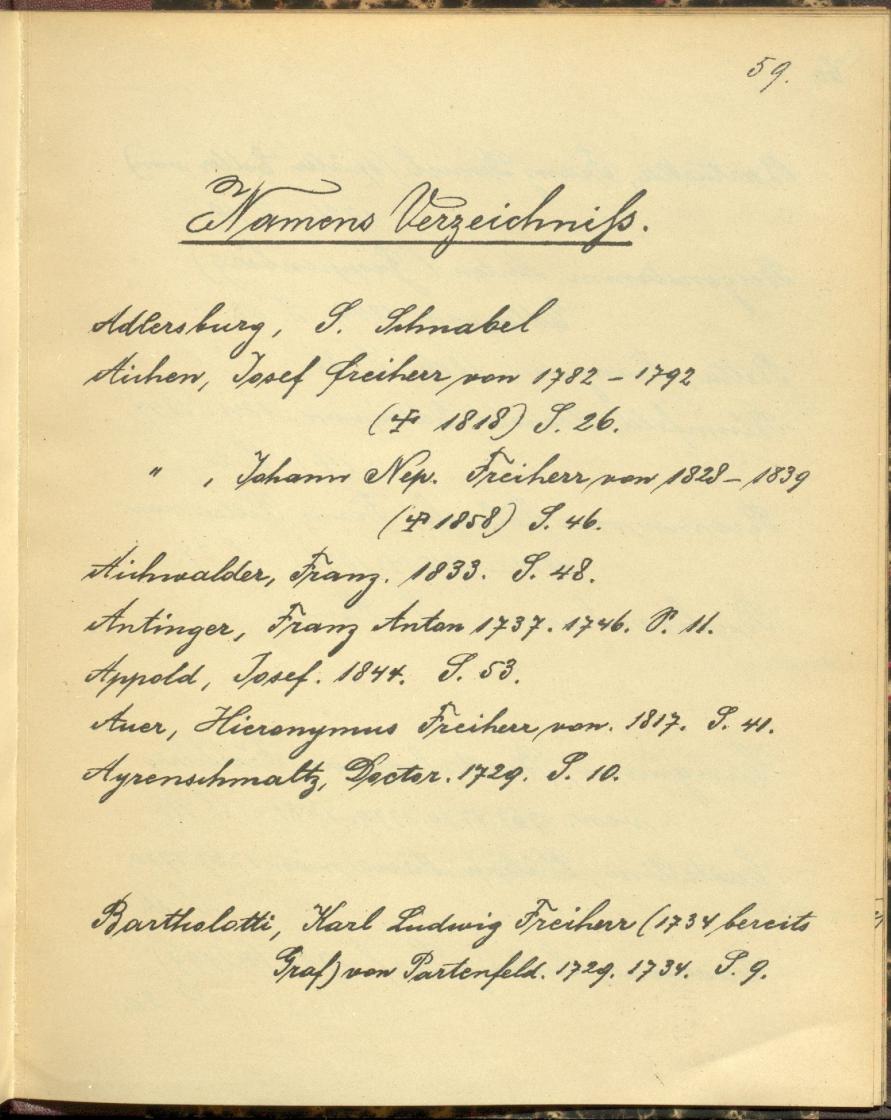 59.
Namens Verzeichniß.
Adlersburg, S. Schnabel
Aichen, Josef Freiherr von 1782 - 1792
(✝ 1818) S. 26.
" , Johann Nep. Freiherr von 1828 - 1839
(✝ 1858) S. 46.
Aichwalder, Franz. 1833. S. 48.
Antinger, Franz Anton 1737. 1746. S. 11.
Appold, Josef. 1844. S. 53.
Auer, Hieronymus Freiherr von. 1817. S. 41.
Ayrenschmaltz, Doctor. 1729. S. 10.
Bartholotti, Karl Ludwig Freiherr (1734 bereits
Graf) von Partenfeld. 1729. 1734. S. 9.